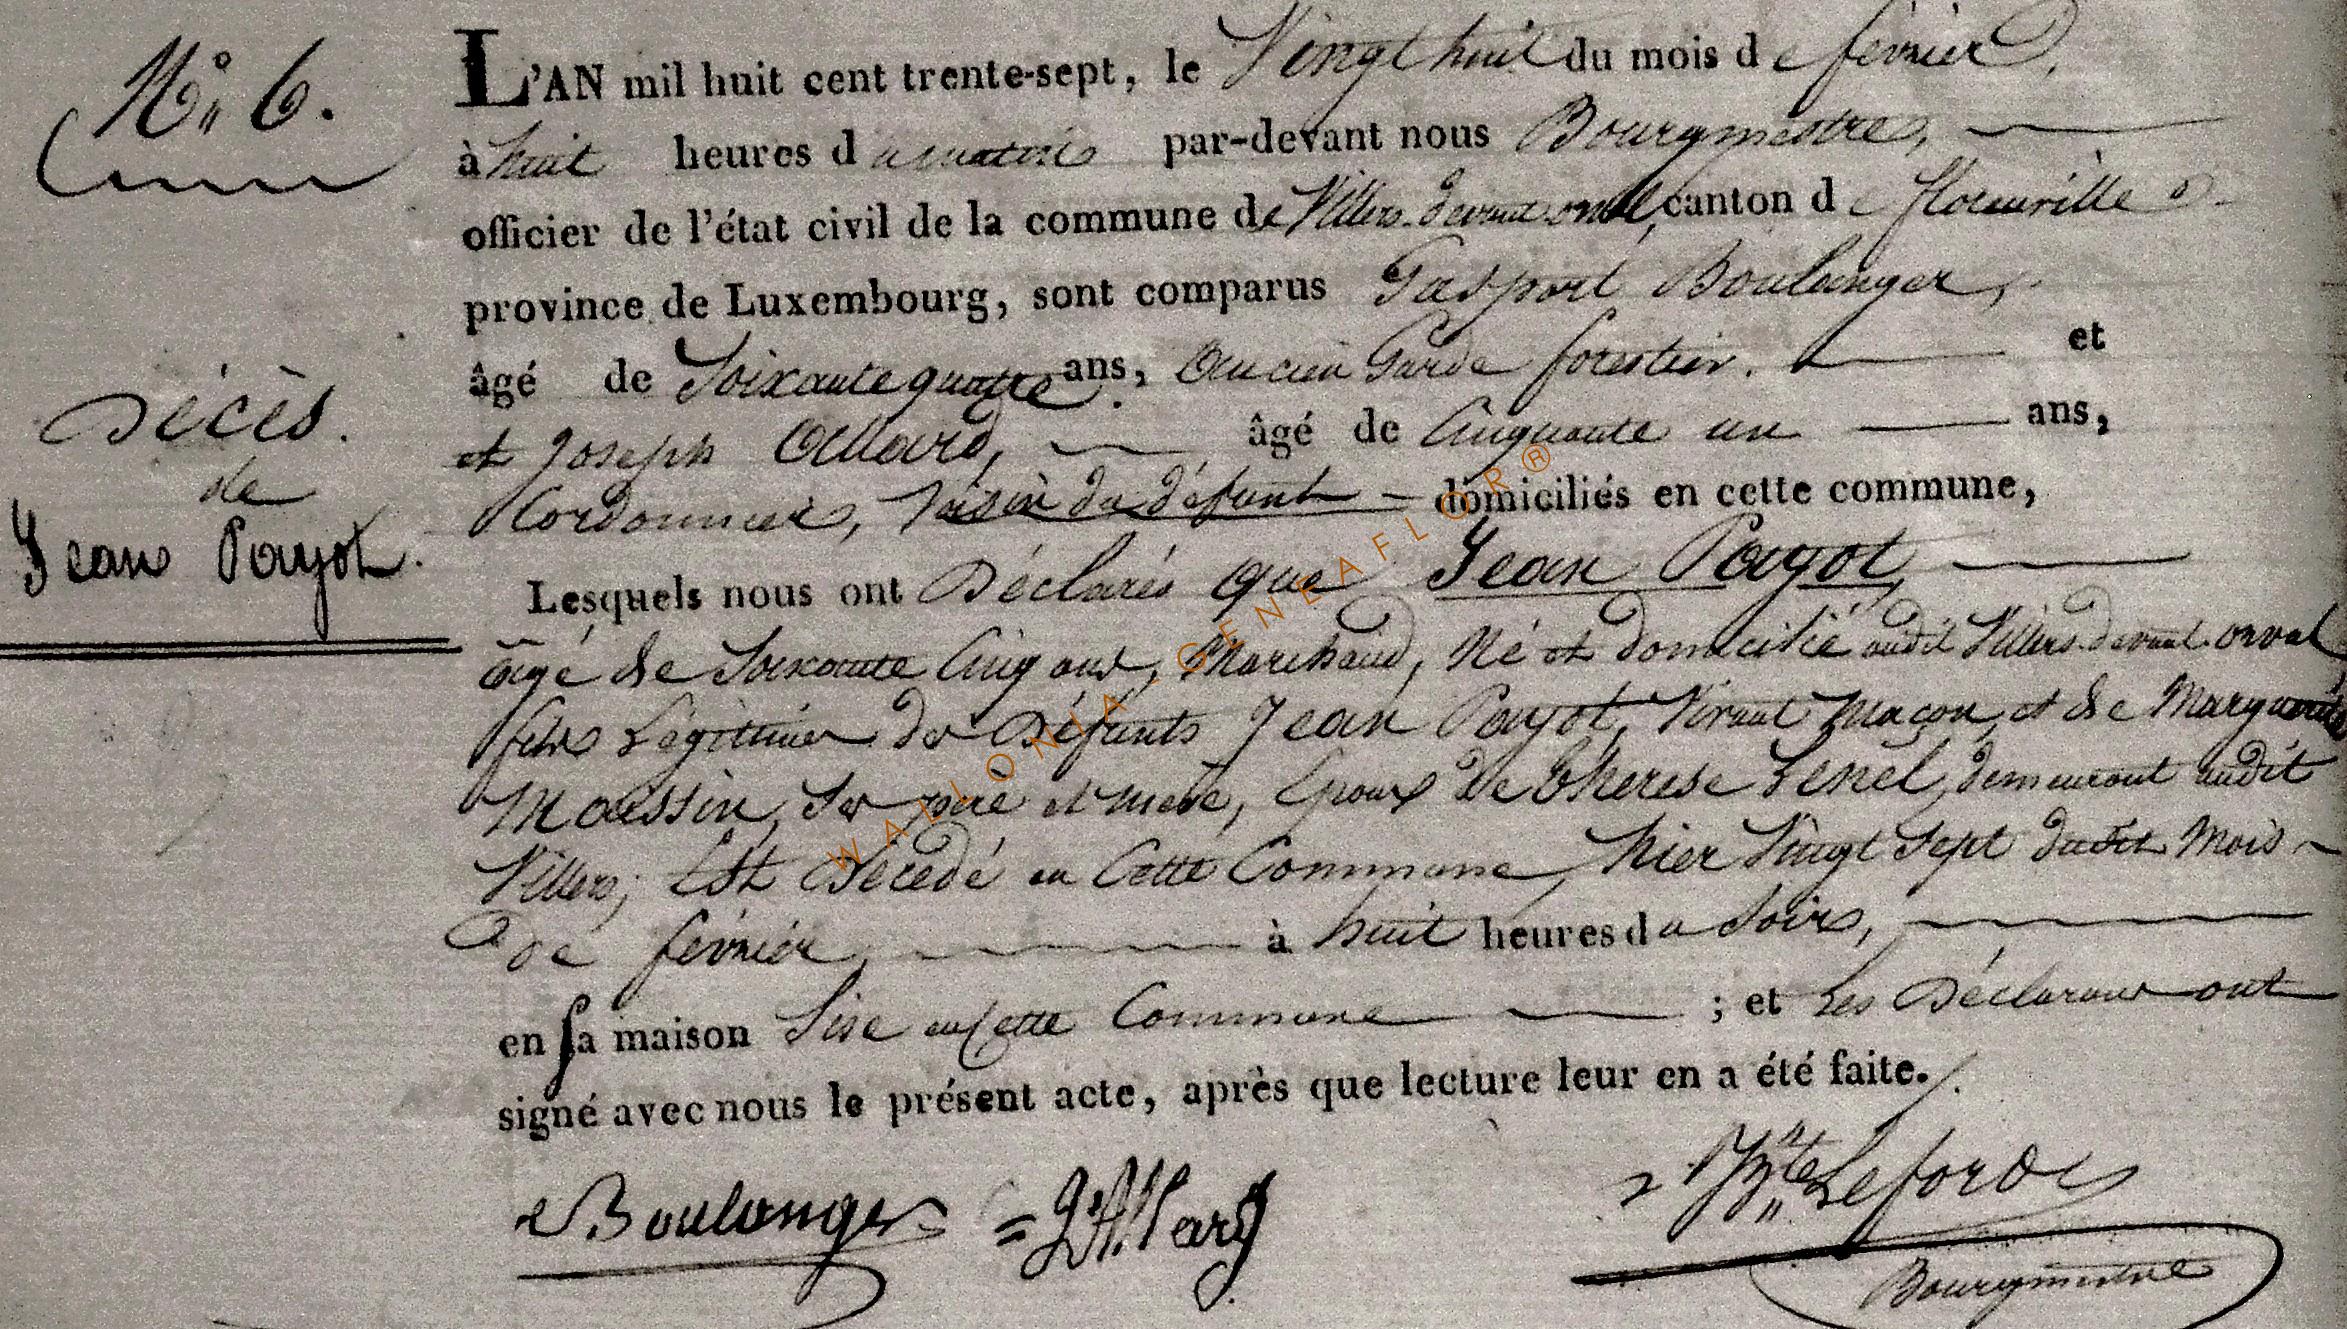 N.° 6.
Décès.
de
Jean Payot.
L'AN mil huit cent trente-sept, le Vingt huit du mois de février,
à huit heures du matin par-devant nous Bourgmestre,
officier de l'état civil de la commune de Villers-devant-orval, canton de florenville
province de Luxembourg, sont comparus Gaspart Boulanger,
âgé de Soixante quatre ans, Ancien Garde forestier. et
et Joseph Allard, âgé de Cinquante un ans,
Cordonnier, Voisin du défunt - domiciliés en cette commune,
Lesquels nous ont Déclarés que Jean Payot,
âgé de Soixante Cinq ans, Marchand, Né et domicilié audit Villers-devant-orval
fils Légitime des Défunts Jean Payot, Vivant Maçon, et de Marguerite
Massin, Ses père et mère, Epoux de Therese Lenel, demeurant audit
Villers; Est Décédé en Cette Commune, hier Vingt Sept dudit Mois
de février, à huit heures du Soir,
en sa maison Sise en Cette Commune ; et Les Déclarans ont
signé avec nous le présent acte, après que lecture leur en a été faite.
Boulanger = J Allard Leford
Bourgmestre
WALLONIA - GENEAFLOR ®